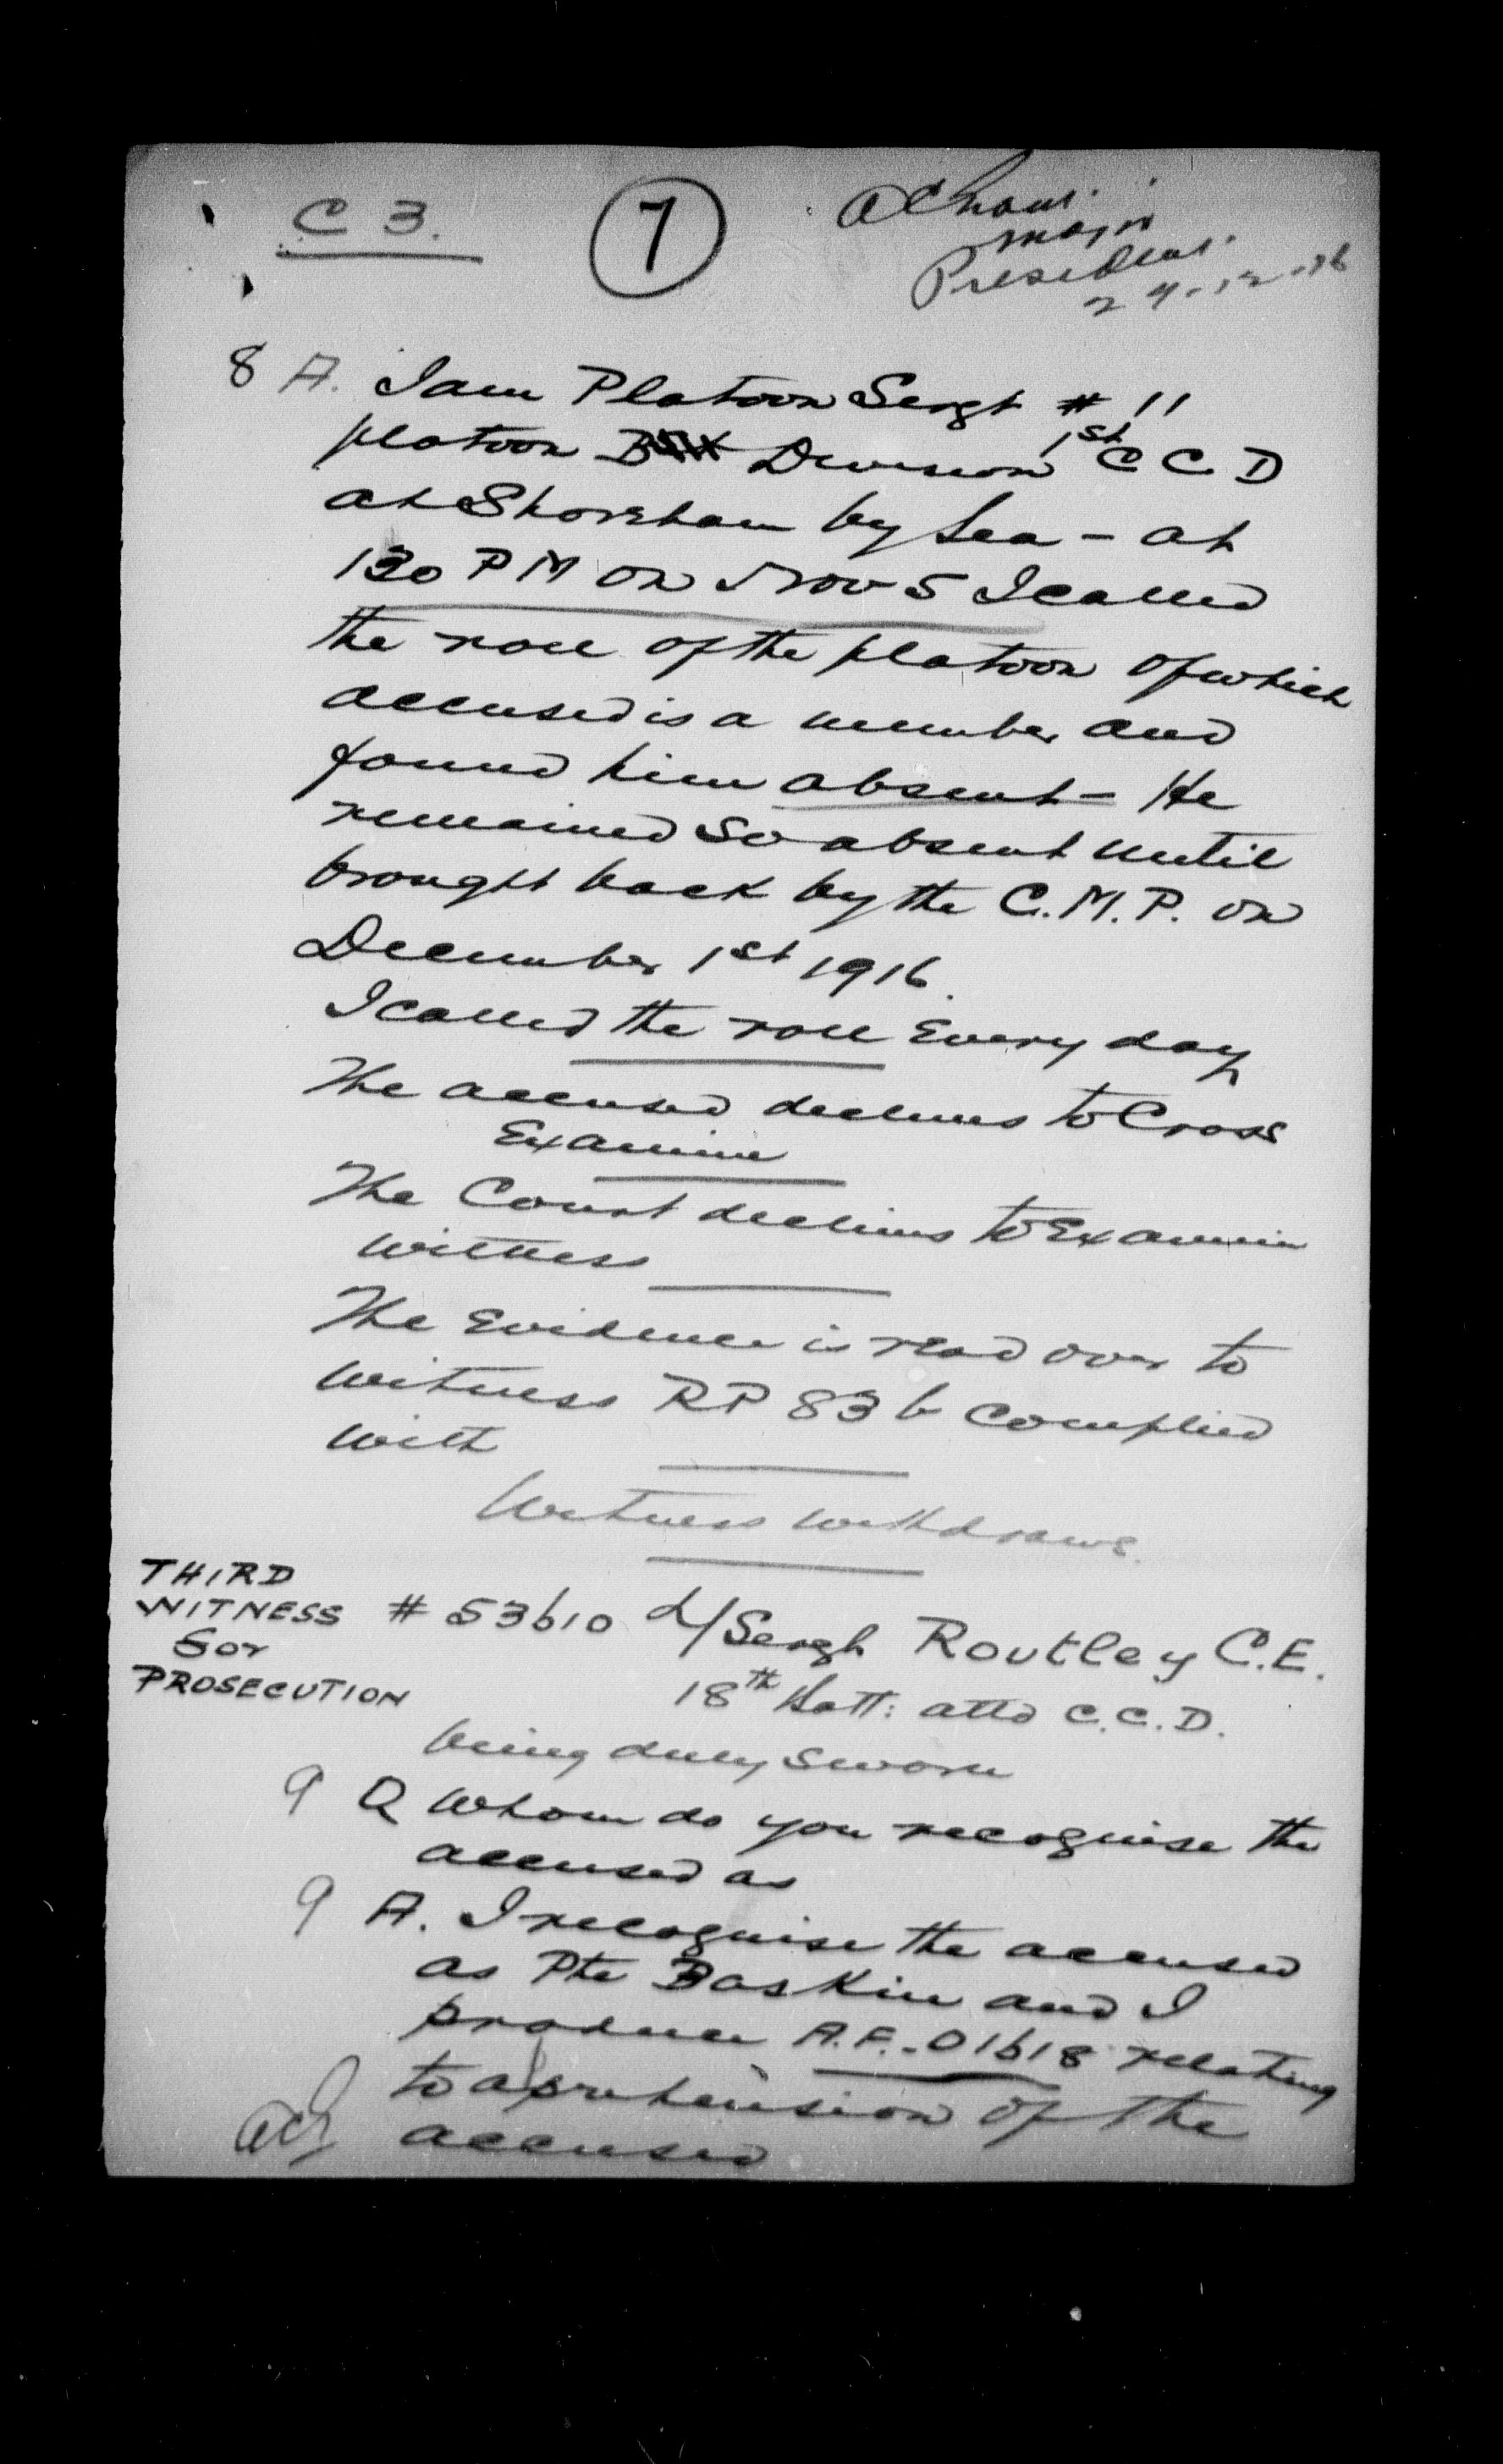 C 3.
7
Major
President
8 A. I am Platoon Sergt # 11
platoon B Division 1st C C D
at Shoreham by Sea - at
130 PM on Nov 5 I called
the roll of the platoon of which
accused is a member and
found him absent - He
remained so absent until
brought back by the C.M.P. on
December 1st 1916.
I called the roll Every day
The accused declines to Cross
Examine
The Court declines to Examine
witness
The Evidence is read over to
witness RP 83 b Complied
with
Witness withdraws.
THIRD
WITNESS # 53610 L/Sergt Routley C.E.
for
PROSECUTION 18th Batt: attd C.C.D.
being duly sworn
9 Q Whom do you recognise the
accused as
9 A. I recognise the accused
as Pte Baskin and I
produce A.F.-O1618 relating
to aprehension of the
accused